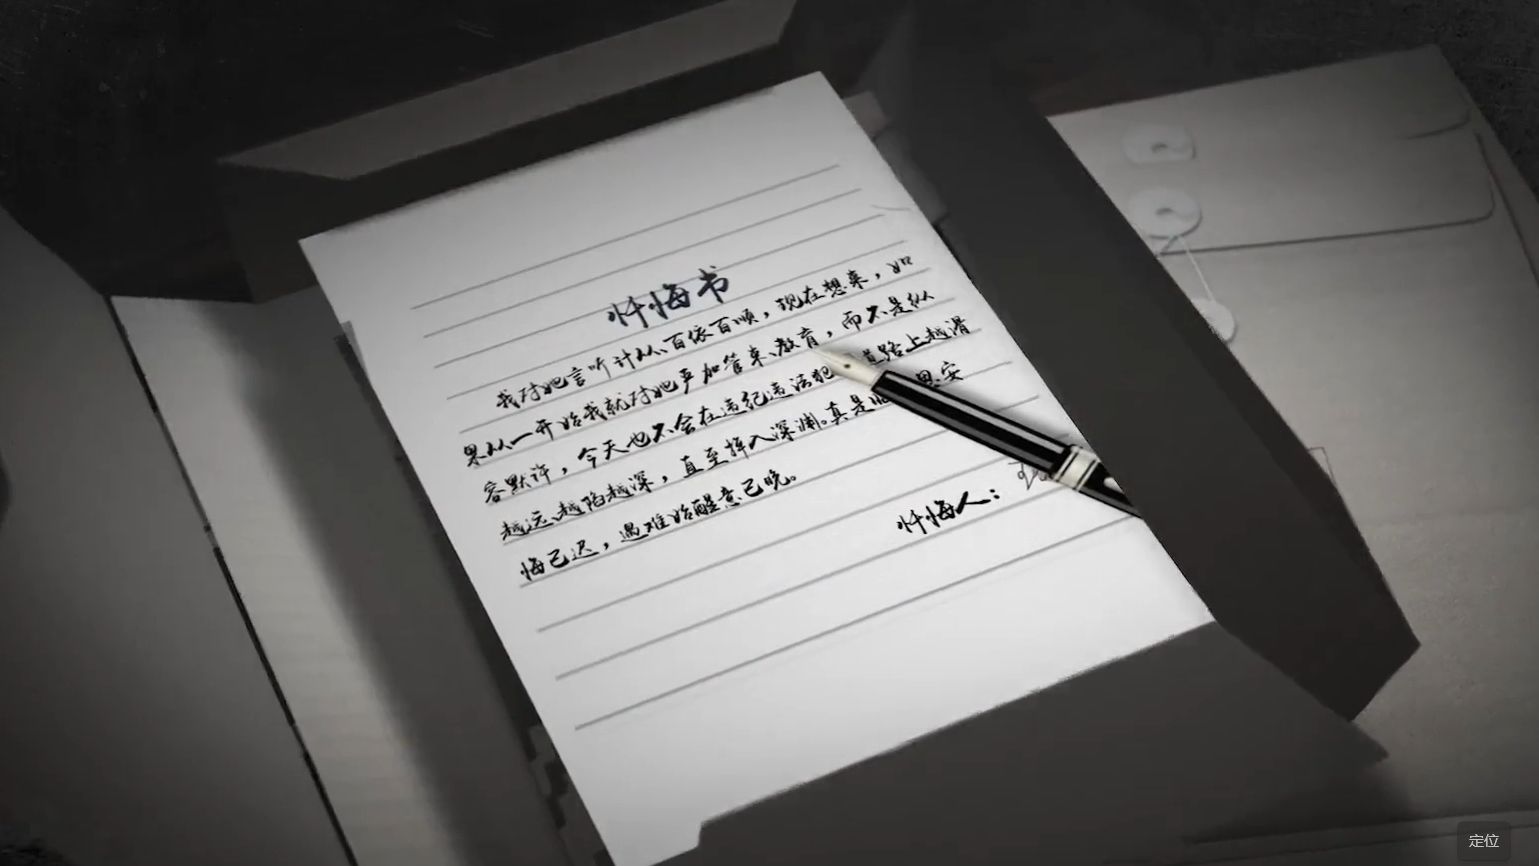 忏悔书
我对她言听计从、百依百顺，现在想来，如
果从一开始我就对她严加管束、教育，而不是纵
容默许，今天也不会在违纪违法犯 道路上越滑
越远、越陷越深，直至掉入深渊。真是临 思安
悔已迟，遇难始醒意已晚。
忏悔人：
定位